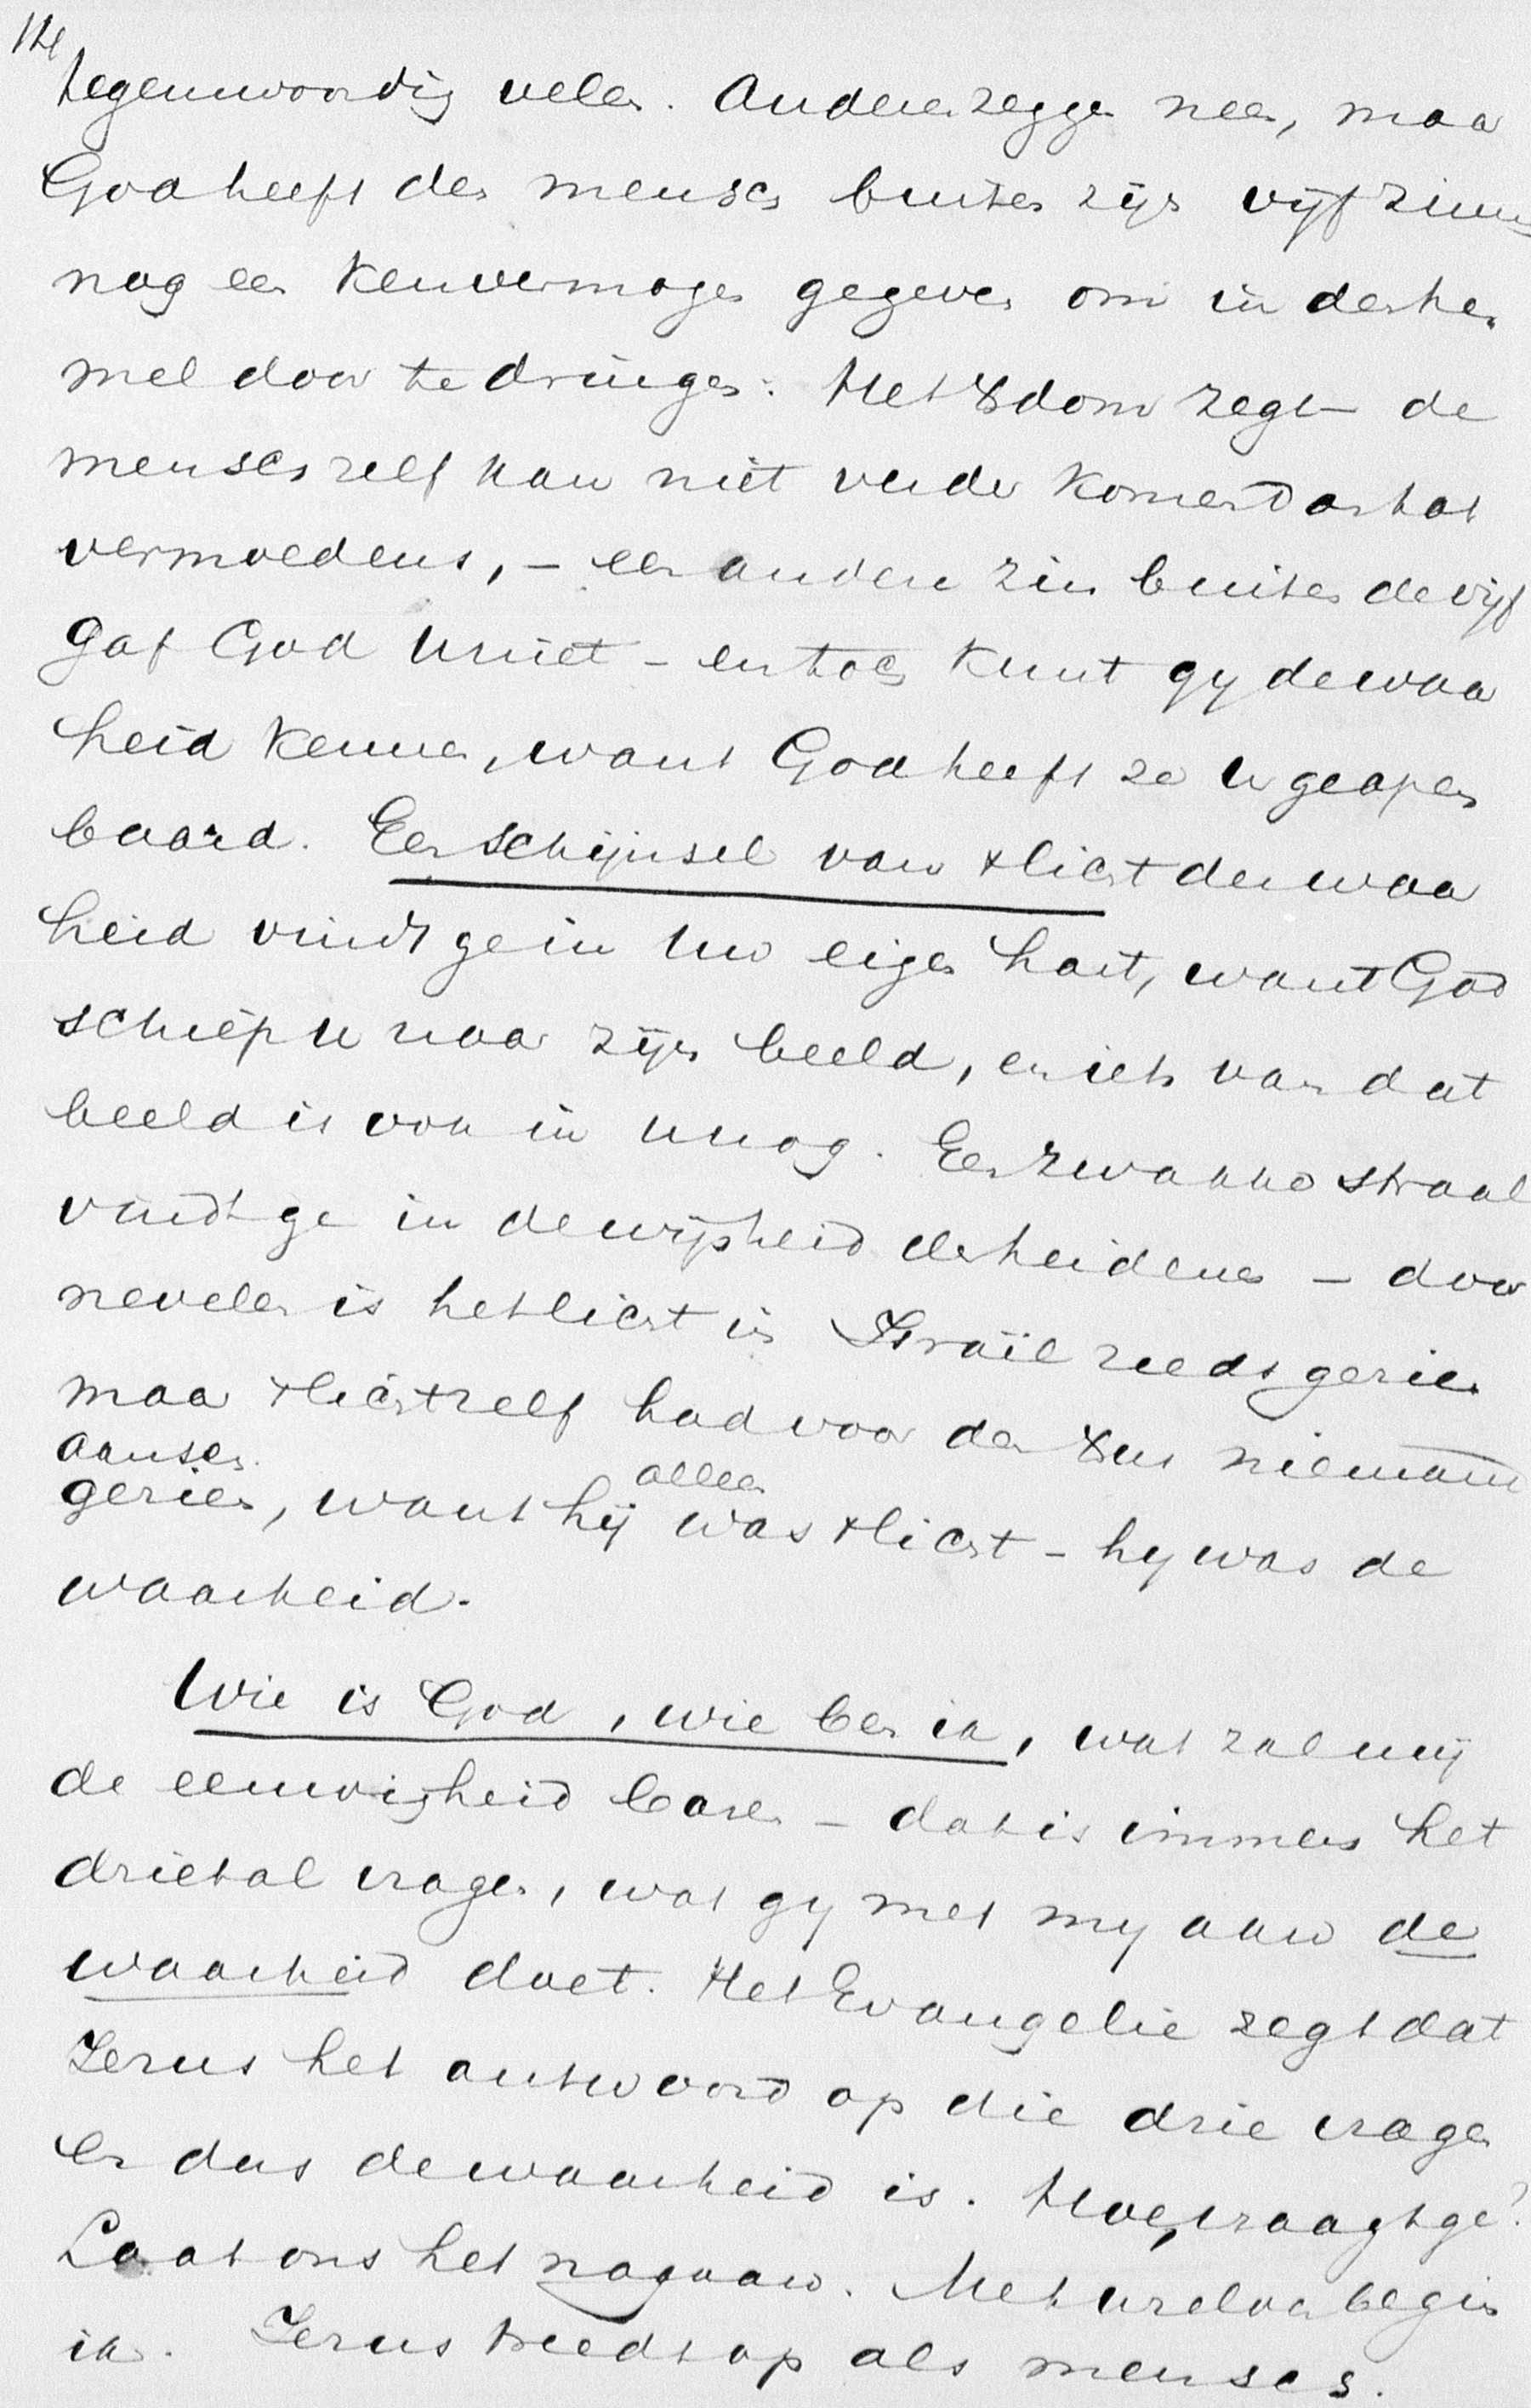 14
tegenwoordig velen. Anderen zeggen neen, maar
God heeft den mensch buiten zijn vijf zinnen
nog een kenvermogen gegeven om in den he-
mel door te dringen. Het Xdom zegt – de
mensch zelf kan niet verder komen dan tot
vermoedens, – een anderen zin buiten de vijf
gaf God u niet – en toch kunt gy de waar
heid kennen, want God heeft ze u geopen
baard. Een schijnsel van t licht der waar
heid vindt ge in uw eigen hart, want God
schiep u naar zijn beeld, en iets van dat
beeld is ook in u nog. Een zwakke straal
vindt ge in de wijsheid der heidenen – door
nevelen is het licht in Israël reeds gezien
maar t licht zelf had voor den Xtus niemand
aansch.
gezien, want hij alleen was t licht – hy was de
waarheid.
Wie is God, wie ben ik, wat zal mij
de eeuwigheid baren – dat is immers het
drietal vragen, wat gy met my aan de
waarheid doet. Het Evangelie zegt dat
Jezus het antwoord op die drie vragen
En dus de waarheid is. Hoe, vraagt ge?
Laat ons het nagaan. Met uzelven begin
ik. Jezus treedt op als mensch.